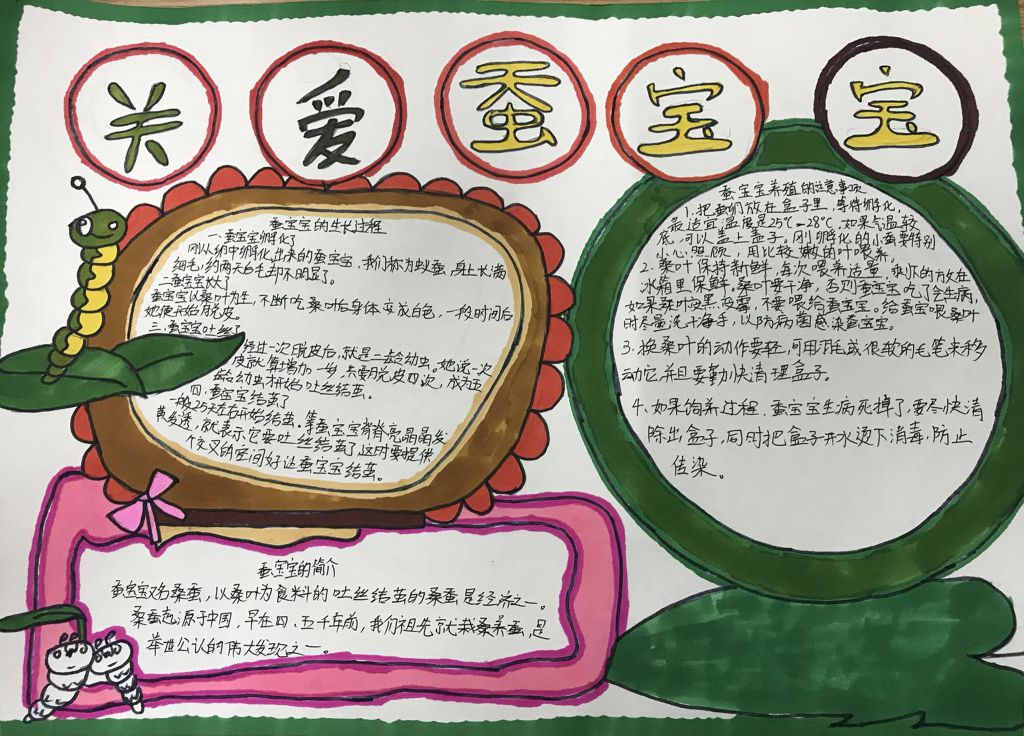 关爱蚕宝宝
蚕宝宝的生长过程
一.蚕宝宝孵化了
刚从卵中孵化出来的蚕宝宝,我们称为蚁蚕,身上长满
细毛,约两天白毛却不明显了。
二蚕宝宝长大
蚕宝宝以桑叶为生,不断吃桑叶后身体变成白色,一段时间后
她便开始脱皮。
三.蚕宝宝吐丝了
经过一次脱皮后,就是二龄幼虫。她脱一次
皮就算增加一岁,共要脱皮四次,成为五
龄幼虫才开始吐丝结茧。
四.蚕宝宝结茧了
一般25天左右开始结茧。等蚕宝宝脊脊亮晶晶发
黄发透,就表示它要吐丝结茧了这时要提供
个交叉的空间好让蚕宝宝结茧。
蚕宝宝的简介
蚕宝宝又名桑蚕,以桑叶为食料的吐丝结茧的桑蚕是经济之一。
桑蚕起源于中国,早在四、五千年前,我们祖先就栽桑养蚕,是
举世公认的伟大发现之一。
蚕宝宝养殖的注意事项
1.把蚕卵放在盒子里,等待孵化,
最适宜温度是25℃-28℃,如果气温较
底,可以盖上盖子,刚孵化的小蚕要特别
小心照顾,用比较嫩的叶喂养。
2.桑叶保持新鲜,每次喂养适量,剩下的放在
冰箱里保鲜,桑叶要干净,否则蚕宝宝吃了会生病,
如果桑叶发黑发霉,不要喂给蚕宝宝。给蚕宝喂桑叶
时尽量洗干净手,以防病菌感染蚕宝宝。
3.换桑叶的动作要轻,可用羽毛或很软的毛笔来移
动它,并且要勤快清理盒子。
4、如果饲养过程,蚕宝宝生病死掉了,要尽快清
除出盒子,同时把盒子开水烫下消毒,防止
传染。